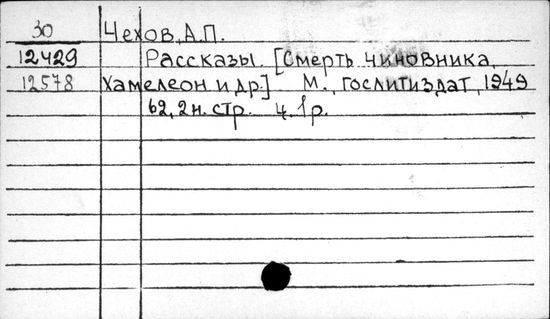 30 Чехов, А.П.
12429 Рассказы. [Смерть чиновника,
12578 Хамелеон и др.] М., Гослитиздат, 1949
62, 2 н. стр. ц. 1 р.